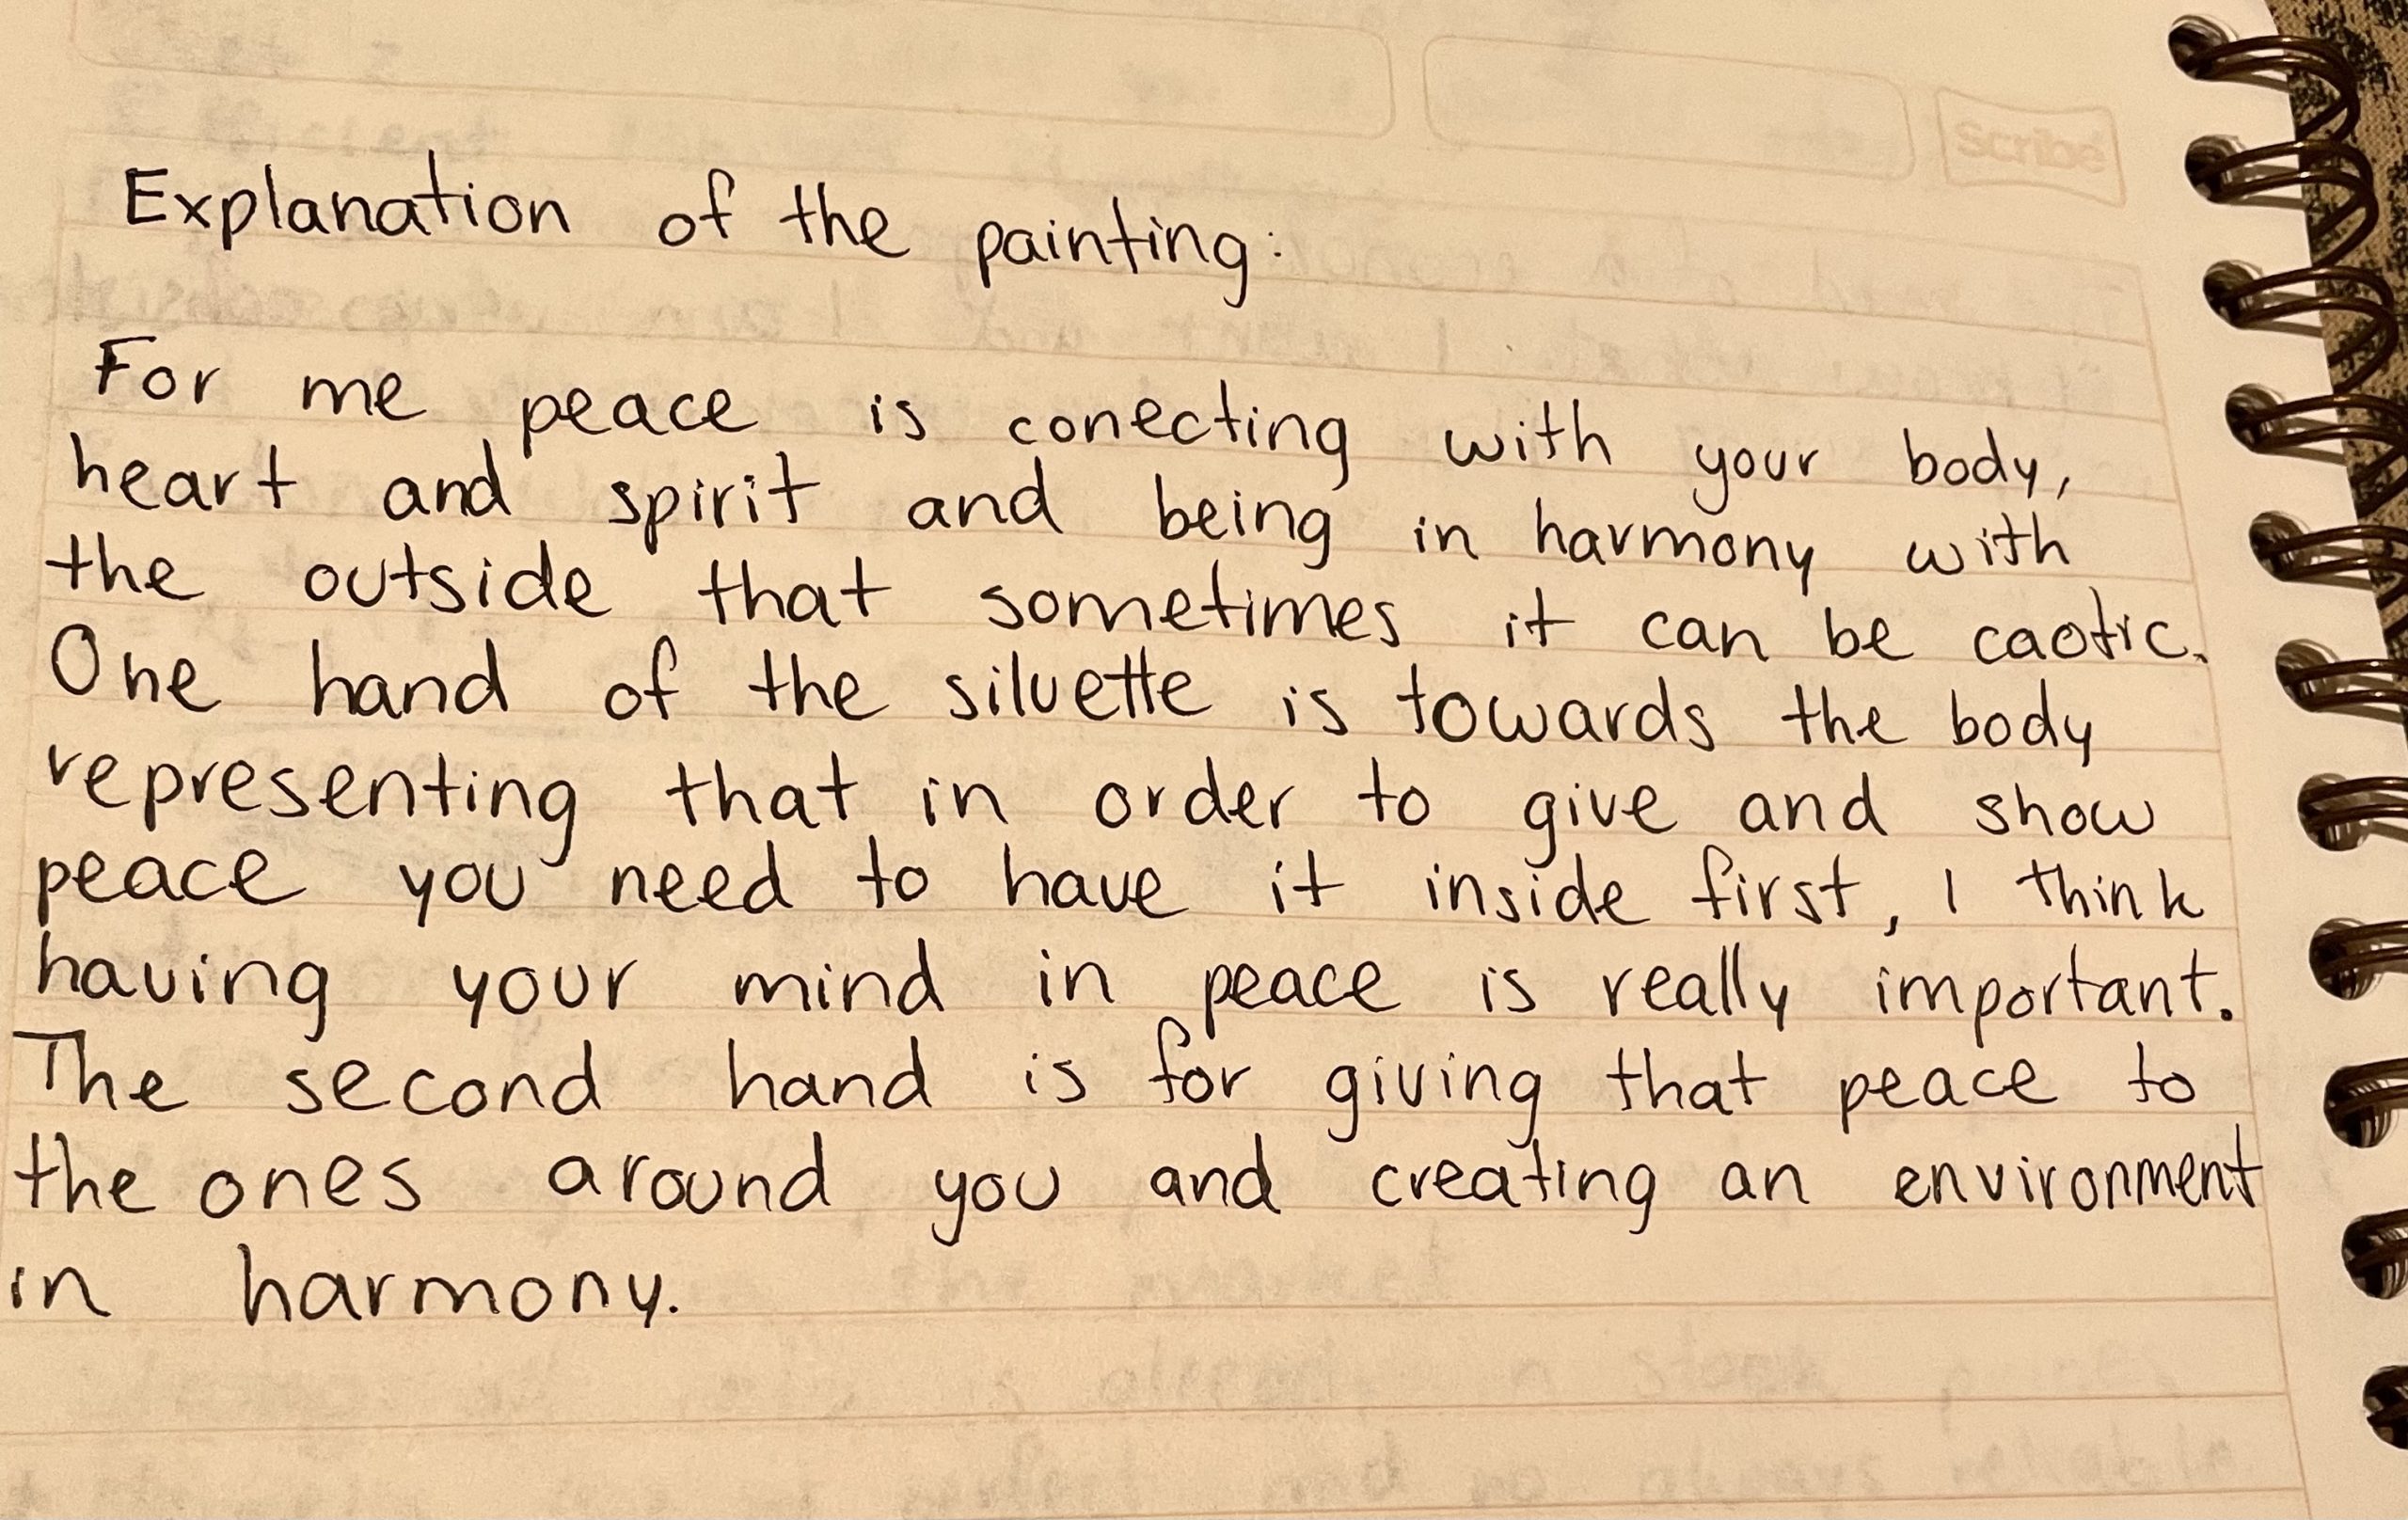 scribe
Explanation of the painting:
For me peace is conecting with your body,
heart and spirit and being in harmony with
the outside that sometimes it can be caotic.
One hand of the siluette is towards the body
representing that in order to give and show
peace you need to have it inside first, I think
having your mind in peace is really important.
The second hand is for giving that peace to
the ones around you and creating an environment
in harmony.